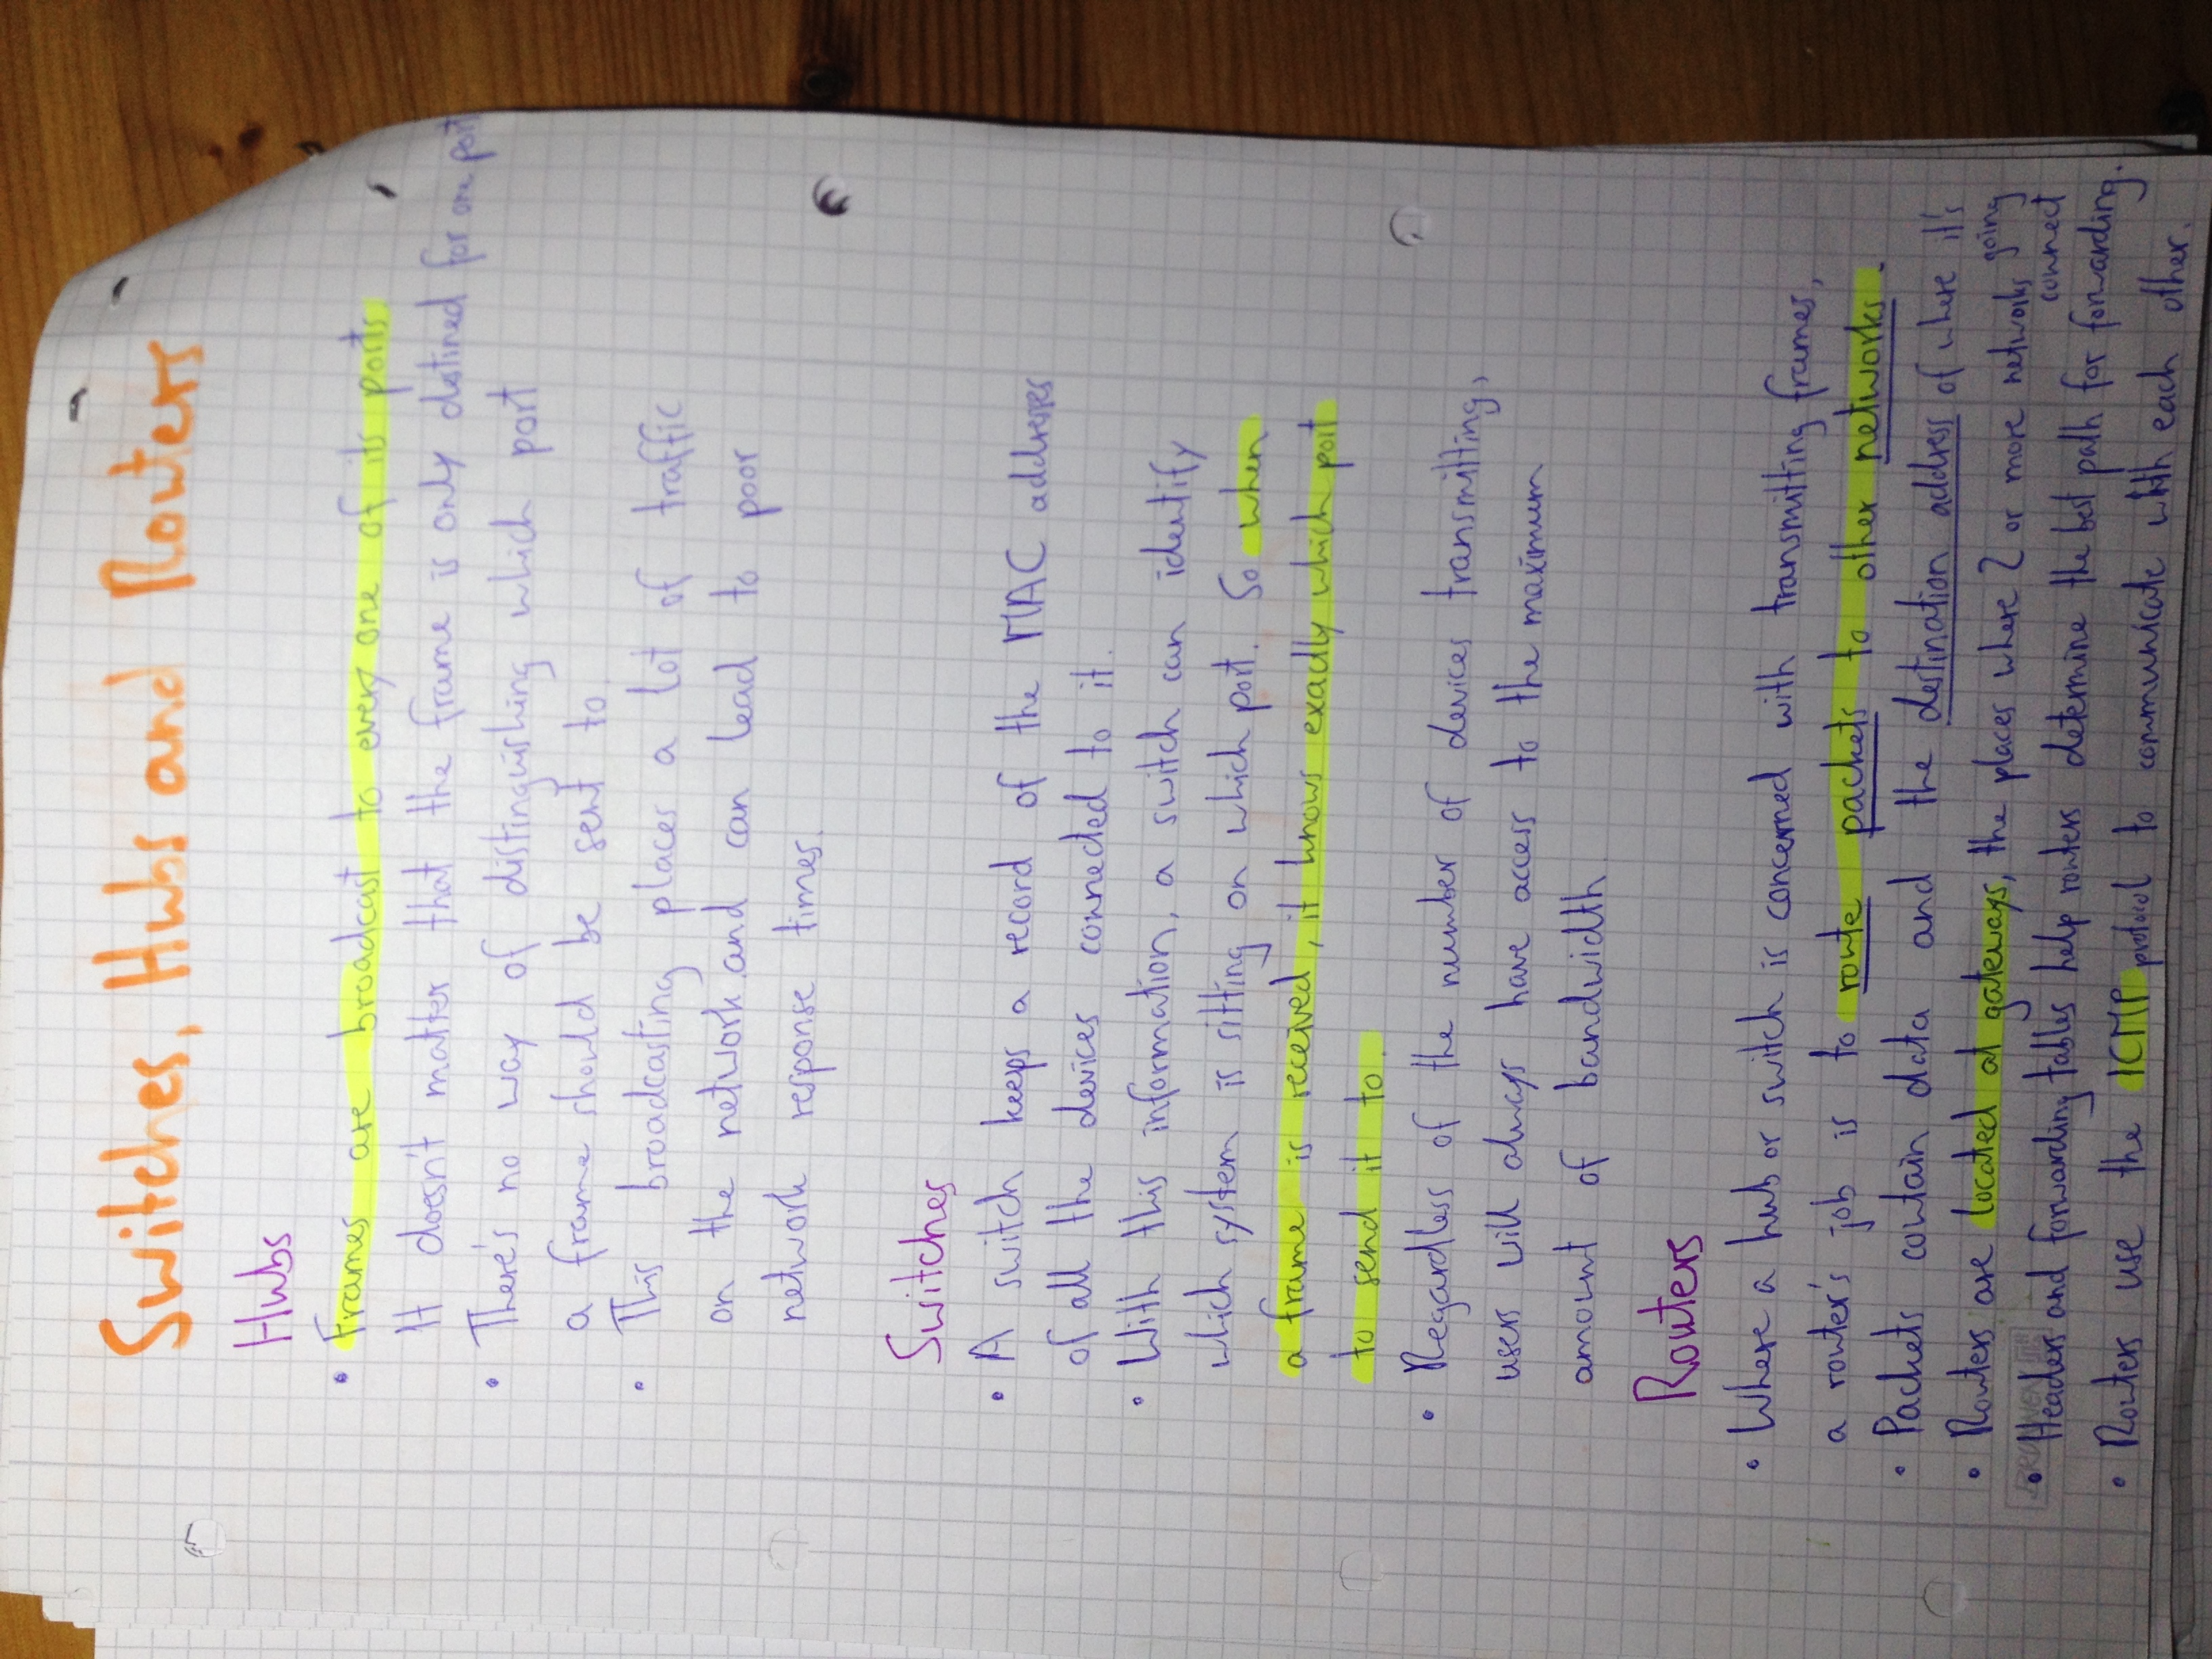 Switches, Hubs and Routers
Hubs
• Frames are broadcast to every one of its ports
It doesn't matter that the frame is only destined for one port
• There's no way of distinguishing which port
a frame should be sent to.
• This broadcasting places a lot of traffic
on the network and can lead to poor
network response times.
Switches
• A switch keeps a record of the MAC addresses
of all the devices connected to it.
• With this information, a switch can identify
which system is sitting on which port. So when
a frame is received, it knows exactly which port
to send it to.
• Regardless of the number of devices transmitting,
users will always have access to the maximum
amount of bandwidth
Routers
• Where a hub or switch is concerned with transmitting frames,
a router's job is to route packets to other networks.
• Packets contain data and the destination address of where it's
going
• Routers are located at gateways, the places where 2 or more networks
connect
• Headers and forwarding tables help routers determine the best path for forwarding.
• Routers use the ICMP protocol to communicate with each other.